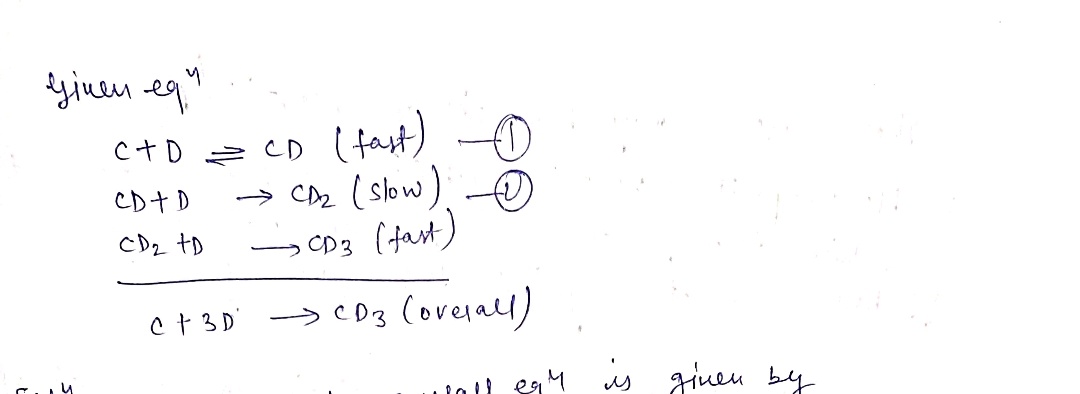 Given eqⁿ
C + D ⇌ CD (fast) — ①
CD + D → CD₂ (slow) — ②
CD₂ + D → CD₃ (fast)
C + 3D → CD₃ (overall)
eqⁿ is given by